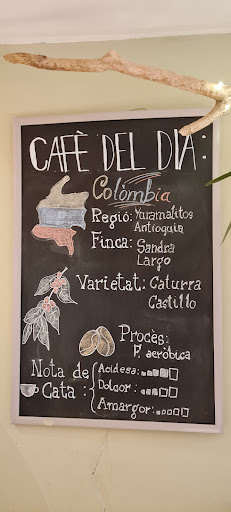 CAFÈ DEL DIA:
Colòmbia
Regió: Yuramalitos
Antioquia
Finca: Sandra
Largo
Varietat: Caturra
Castillo
Procès:
F. aeròbica
Nota de Cata:
Acidesa:
Dolçor:
Amargor: